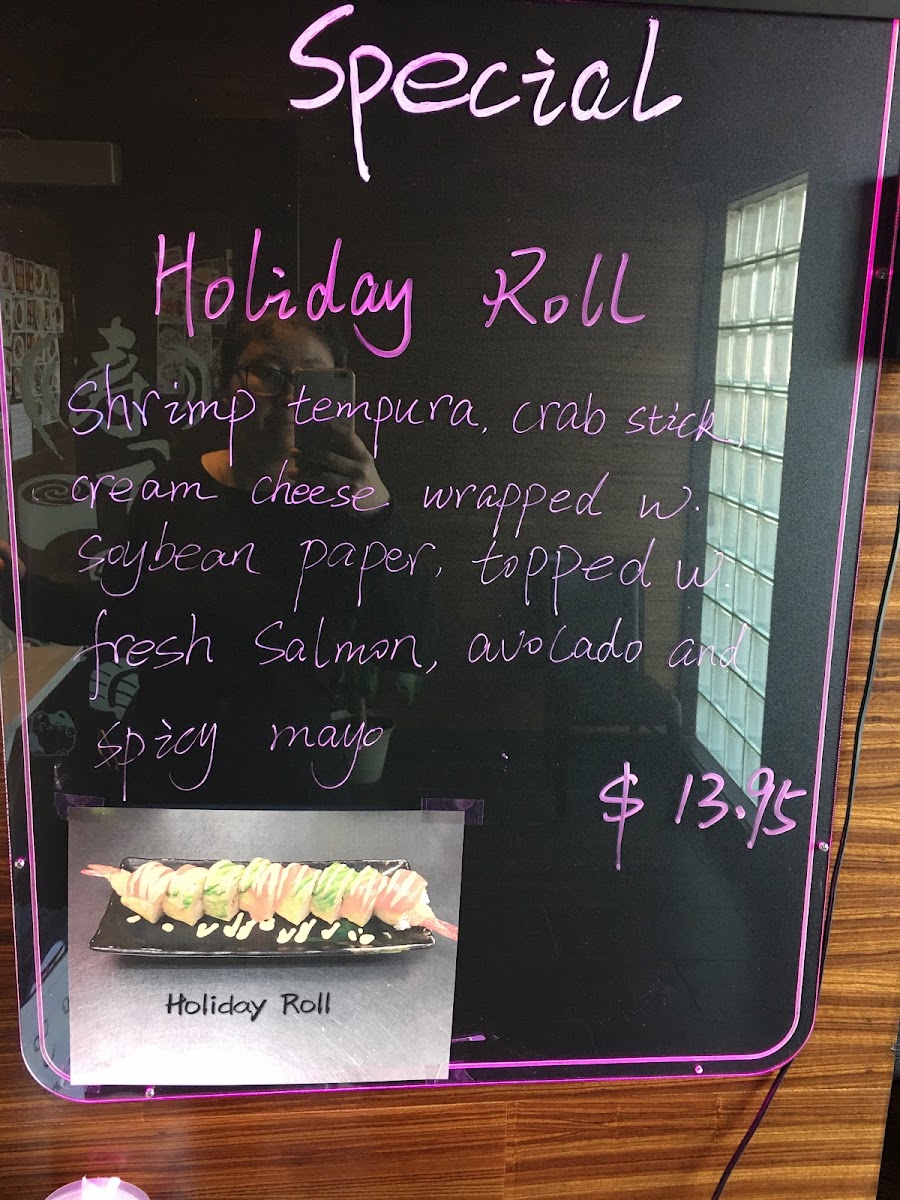 Special
Holiday Roll
Shrimp tempura, crab stick,
cream cheese wrapped w.
soybean paper, topped w.
fresh salmon, avocado and
spicy mayo
$ 13.95
Holiday Roll